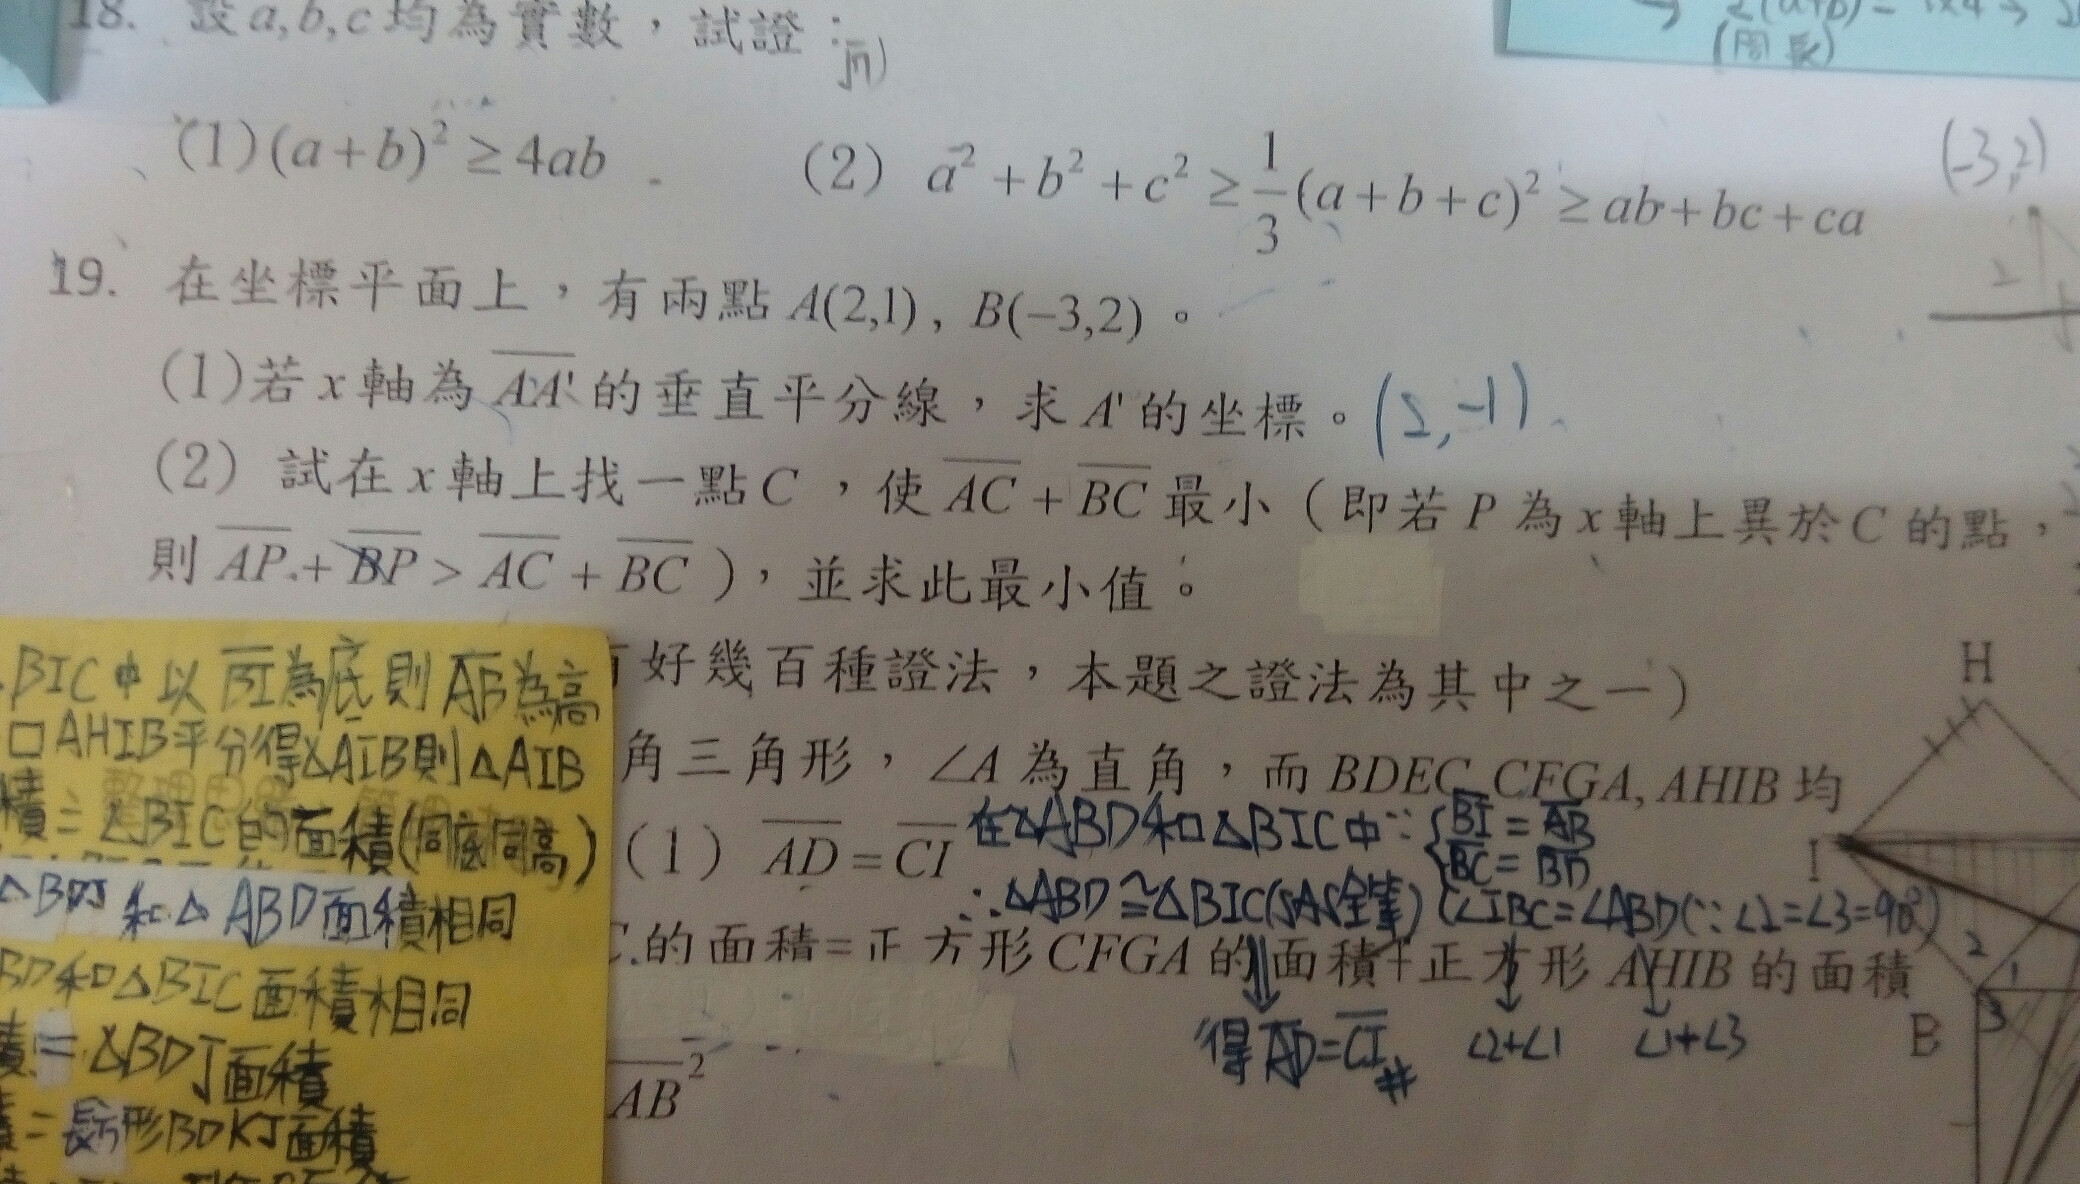 18. 設a,b,c均為實數，試證：
(周長)
(1)(a+b)² ≥ 4ab
(2) a² + b² + c² ≥ 1/3(a+b+c)² ≥ ab+bc+ca
(-3,2)
2
19. 在坐標平面上，有兩點 A(2,1), B(−3,2)。
(1)若x軸為AA'的垂直平分線，求A'的坐標。(2,-1)
(2) 試在x軸上找一點C，使AC+BC最小（即若P為x軸上異於C的點，
則AP+BP > AC+BC），並求此最小值。
好幾百種證法，本題之證法為其中之一）
角三角形，∠A為直角，而BDEC, CFGA, AHIB均
(1) AD = CI
在△ABD和△BIC中∵{BI=AB
BC=BD
∠IBC=∠ABD(∵∠2=∠3=90°)
∴△ABD≅△BIC(SAS全等)
的面積=正方形CFGA的面積+正方形AHIB的面積
得AD=CI#
∠2+∠1
∠1+∠3
AB²
BIC中以BI為底則AB為高
口AHIB平分得△AIB則△AIB
積=△BIC的面積(同底同高)
△BDJ和△ABD面積相同
BD和△BIC面積相同
積=△BDJ面積
=長方形BDKJ面積
H
I
2
1
B
3